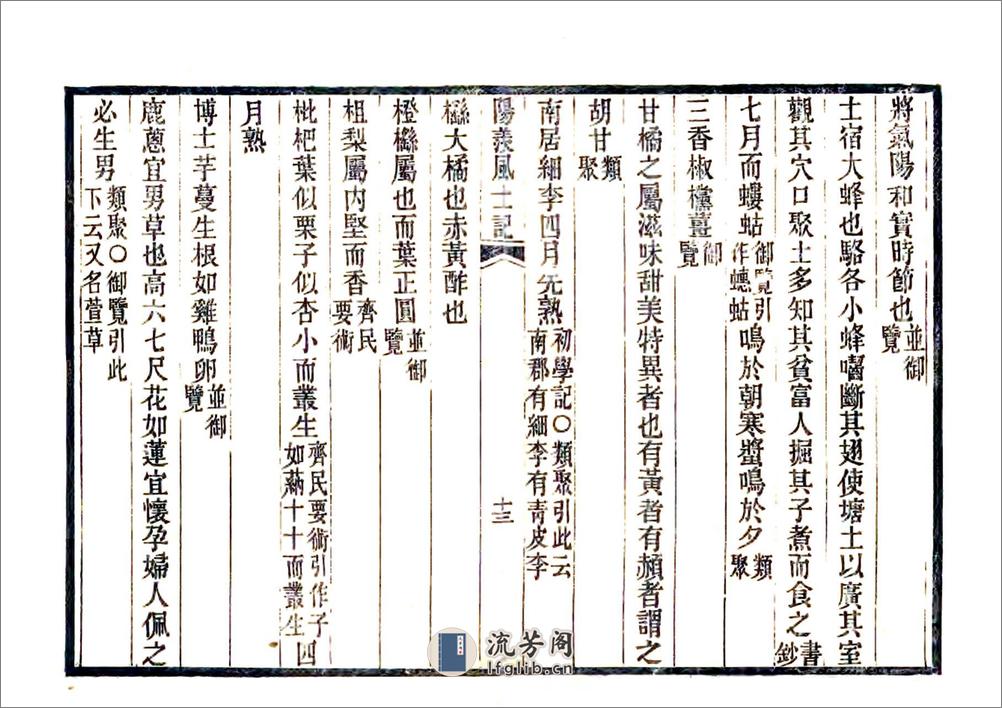 將氣陽和實時節也並御覽
土宿大蜂也駱各小蜂囓斷其翅使塘土以廣其室
觀其穴口聚土多知其貧富人掘其子煮而食之書鈔
七月而螻蛄御覽引作蟪蛄鳴於朝寒螿鳴於夕類聚
三香椒欓薑御覽
甘橘之屬滋味甜美特異者也有黃者有赬者謂之
胡甘類聚
南居細李四月先熟初學記○類聚引此云南郡有細李有青皮李
陽羨風土記
十三
櫾大橘也赤黃酢也
橙櫾屬也而葉正圓並御覽
柤梨屬內堅而香齊民要術
枇杷葉似栗子似杏小而叢生齊民要術引作子如蒳十十而叢生四
月熟
博士芋蔓生根如雞鴨卵並御覽
鹿蔥宜男草也高六七尺花如蓮宜懷孕婦人佩之
必生男類聚○御覽引此下云又名萱草
流芳阁
lfglib.cn